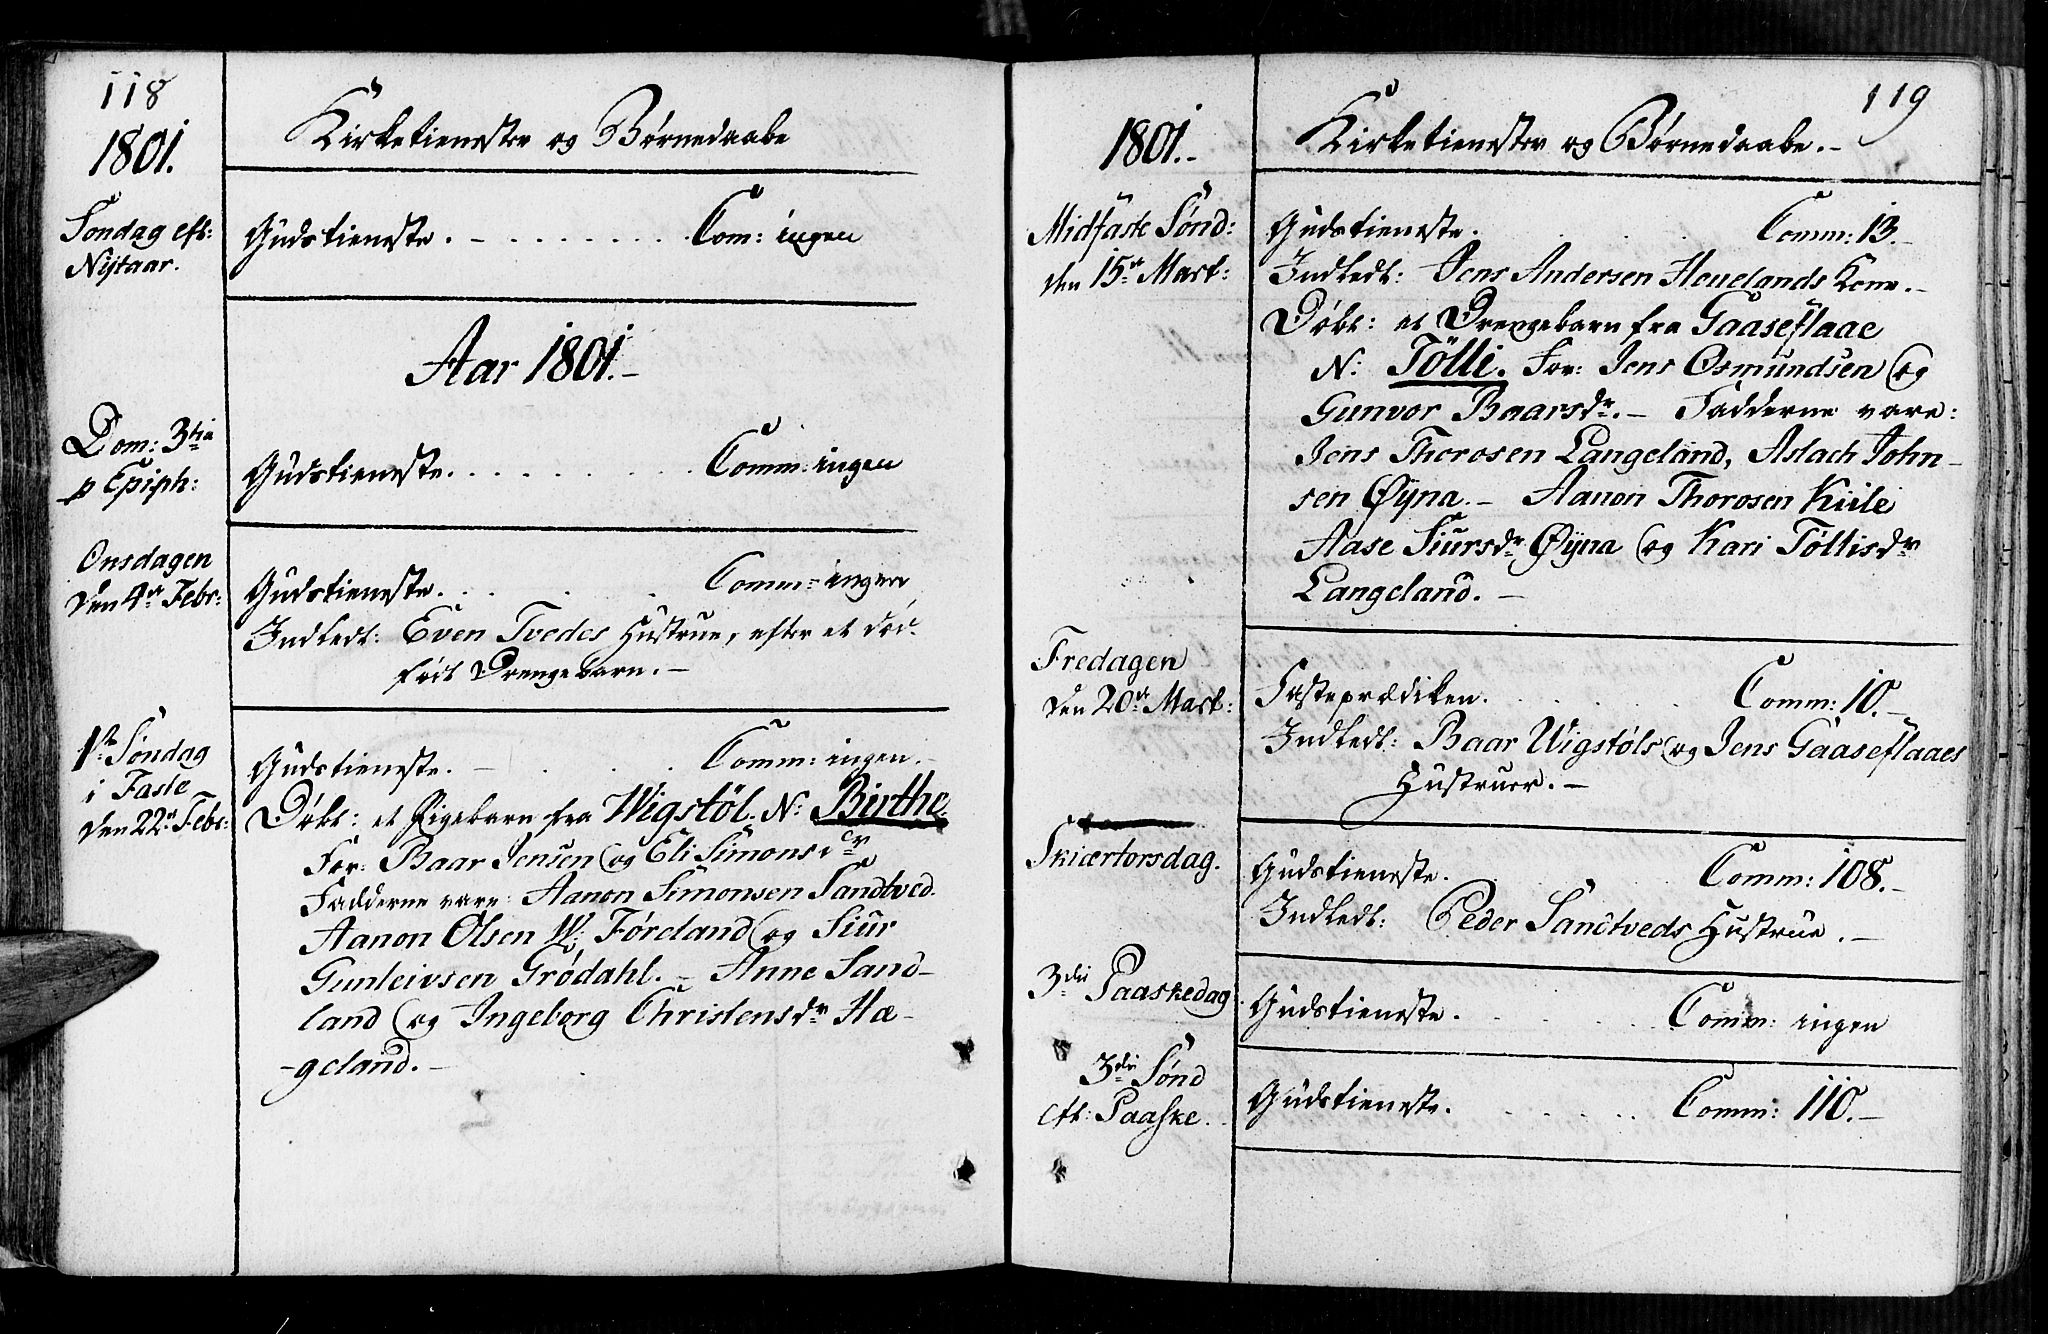 118
1801.
Kirketienester og Børnedaabe
Søndag eft:
Nÿtaar.
Gudstieneste. - . . . . . . . . Com: ingen
Aar 1801.-
Dom: 3tia
p Epiph:
Gudstieneste. . . . . . . . . . Comm: ingen
Onsdagen
den 4de Febr:
Gudstieneste. . . . . Comm: ingen
Indledt: Even Tvedes Hustrue, efter et død-
födt Drengebarn. -
1te Søndag
i Faste
den 22de Febr:
Gudstieneste. - . . . . Comm: ingen. -
Døbt: et Pigebarn fra Wigstöl. N: Birthe.
For: Baar Jensen og Eli Simonsdr
Fadderne vare: Aanon Simonsen Sandtved.
Aanon Olsen W: Føreland og Siur
Gunleivsen Grödahl. - Anne Sand-
land og Ingeborg Christensdr Hæ-
-geland. -
119
1801.-
Kirketienester og Børnedaabe. -
Midfaste Sønd:
den 15de Mart:
Gudstieneste. . . . Comm: 13.-
Indledt: Jens Andersen Houelands Kone. -
Døbt: et Drengebarn fra Gaaseflaae
N: Tölli. For: Jens Osmundsen og
Gunvor Baarsdr. - Fadderne vare:
Jens Thorosen Langeland, Aslach John-
sen Øÿna. - Aanon Thorosen Kiile
Aase Siursdr Øÿna og Kari Töllisdr
Langeland. -
Fredagen
den 20de Mart:
Fasteprædiken. . . . . . Comm: 10.-
Indledt: Baar Wigstøls og Jens Gaaseflaaes
Hustruer. -
Skiærtorsdag.
Gudstieneste. . . . . Comm: 108.-
Indledt: Peder Sandtveds Hustrue. -
3die Paaskedag
Gudstieneste. . . . . Comm: ingen
3die Sønd
eft: Paaske.
Gudstieneste. . . . . . Comm: 110.-